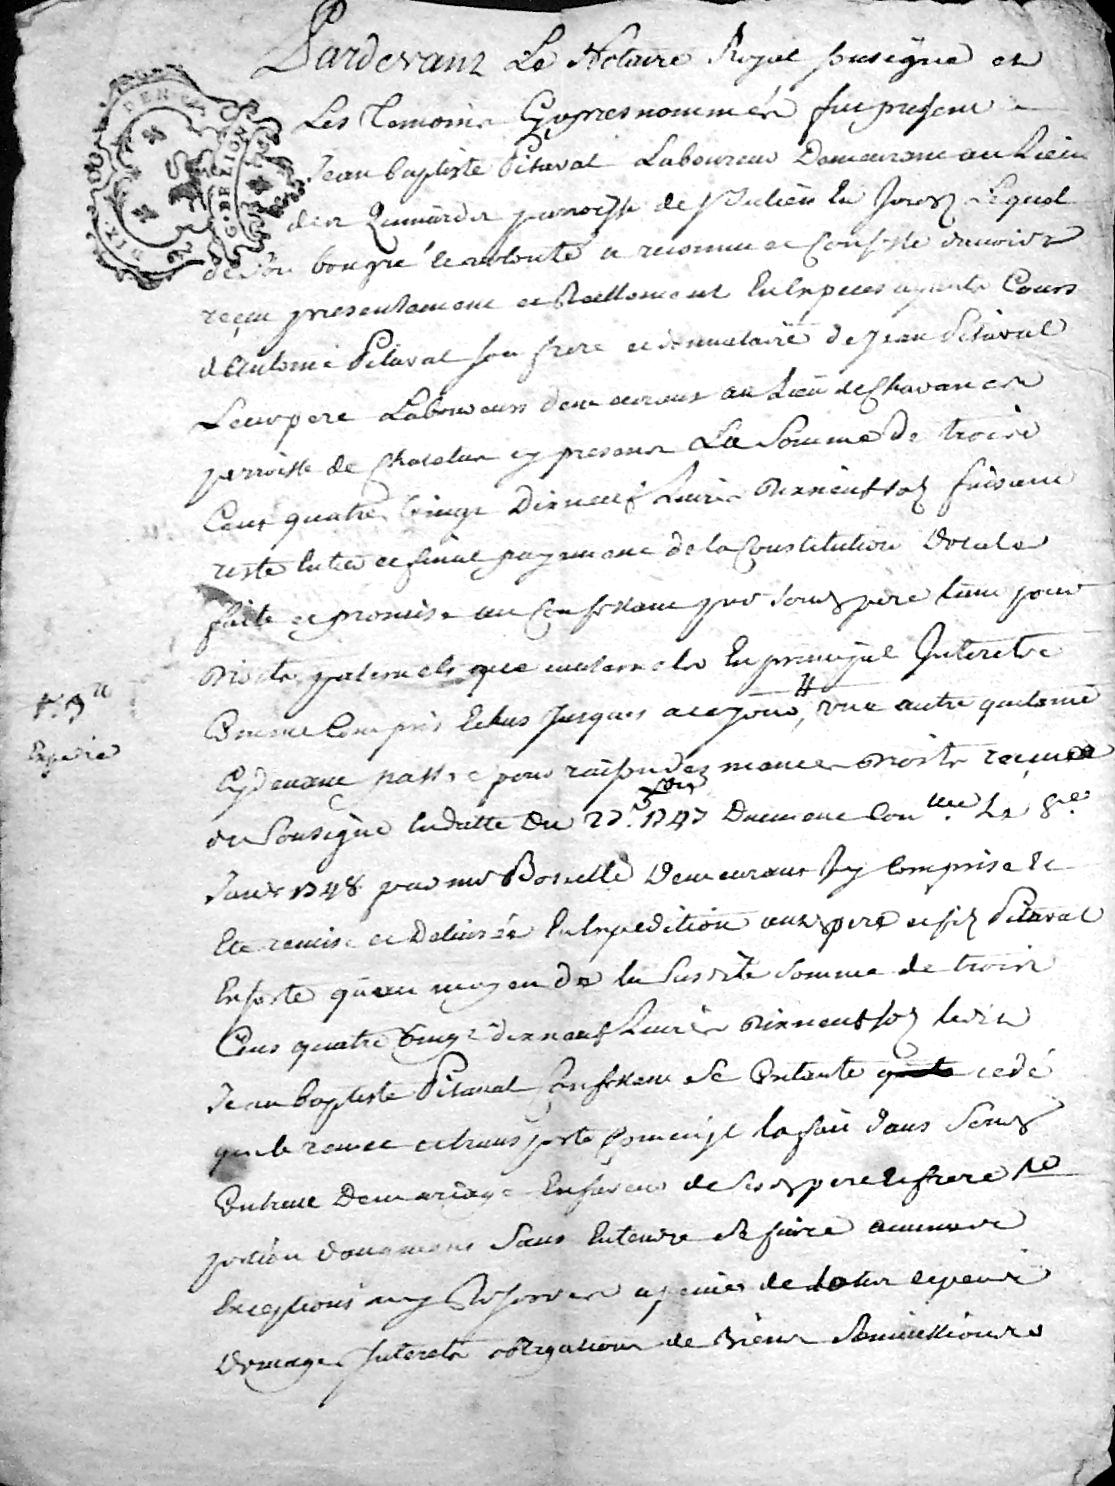 Pardevant Le Notaire Royal sousigné et
Les Temoins Cyapres nommés fut present
Jean baptiste Pitaval Laboureur Demeurant au Lieu
des parroisse de St Julien En Jarez Lequel
de son bon gré et volonté a reconnu et Confessé avoir
reçeu presentement et Reellement En Especes ayants Cours
d'Antoine Pitaval son frere et donnataire de Jean Pitaval
Leur pere Laboureurs demeurant au Lieu de Chavannes
parroisse de Chatelus cy present La Somme de trois
Cent quatre Vingt Dixneuf Livres Dixneuf sols faisant
reste Entier et final payement de la Constitution Dotale
faite et promise au Confessant par sond pere tant pour
Droits paternels que maternels En principal Interets
Comme Compris Echus Jusques a ce jour, une autre quittance
Cydevant passée pour raison des memes Droits reçue
du Sousigné En datte Du 27e 1747 Duement Conllee Le 8e
Janvr 1748 par mr Demeurant Comprise Et
Ete remise et Delivrée En Expedition auxd pere et fils Pitaval
Ensorte qu'au moyen de la Susdite Somme de trois
Cens quatre Vingt dixneuf Livres Dixneuf sols ledit
Jean baptiste Pitaval Confessant se Contente quitte cedé
remet et transporte la fait dans Sond
Contract De mariage En faveur de Sesd pere et frere
portion d'augment Sans Entendre s'y faire aucune
Exceptions ny Reserves a peine de tous depens
Domages Interets obligations de Biens Soumissions
Expedié